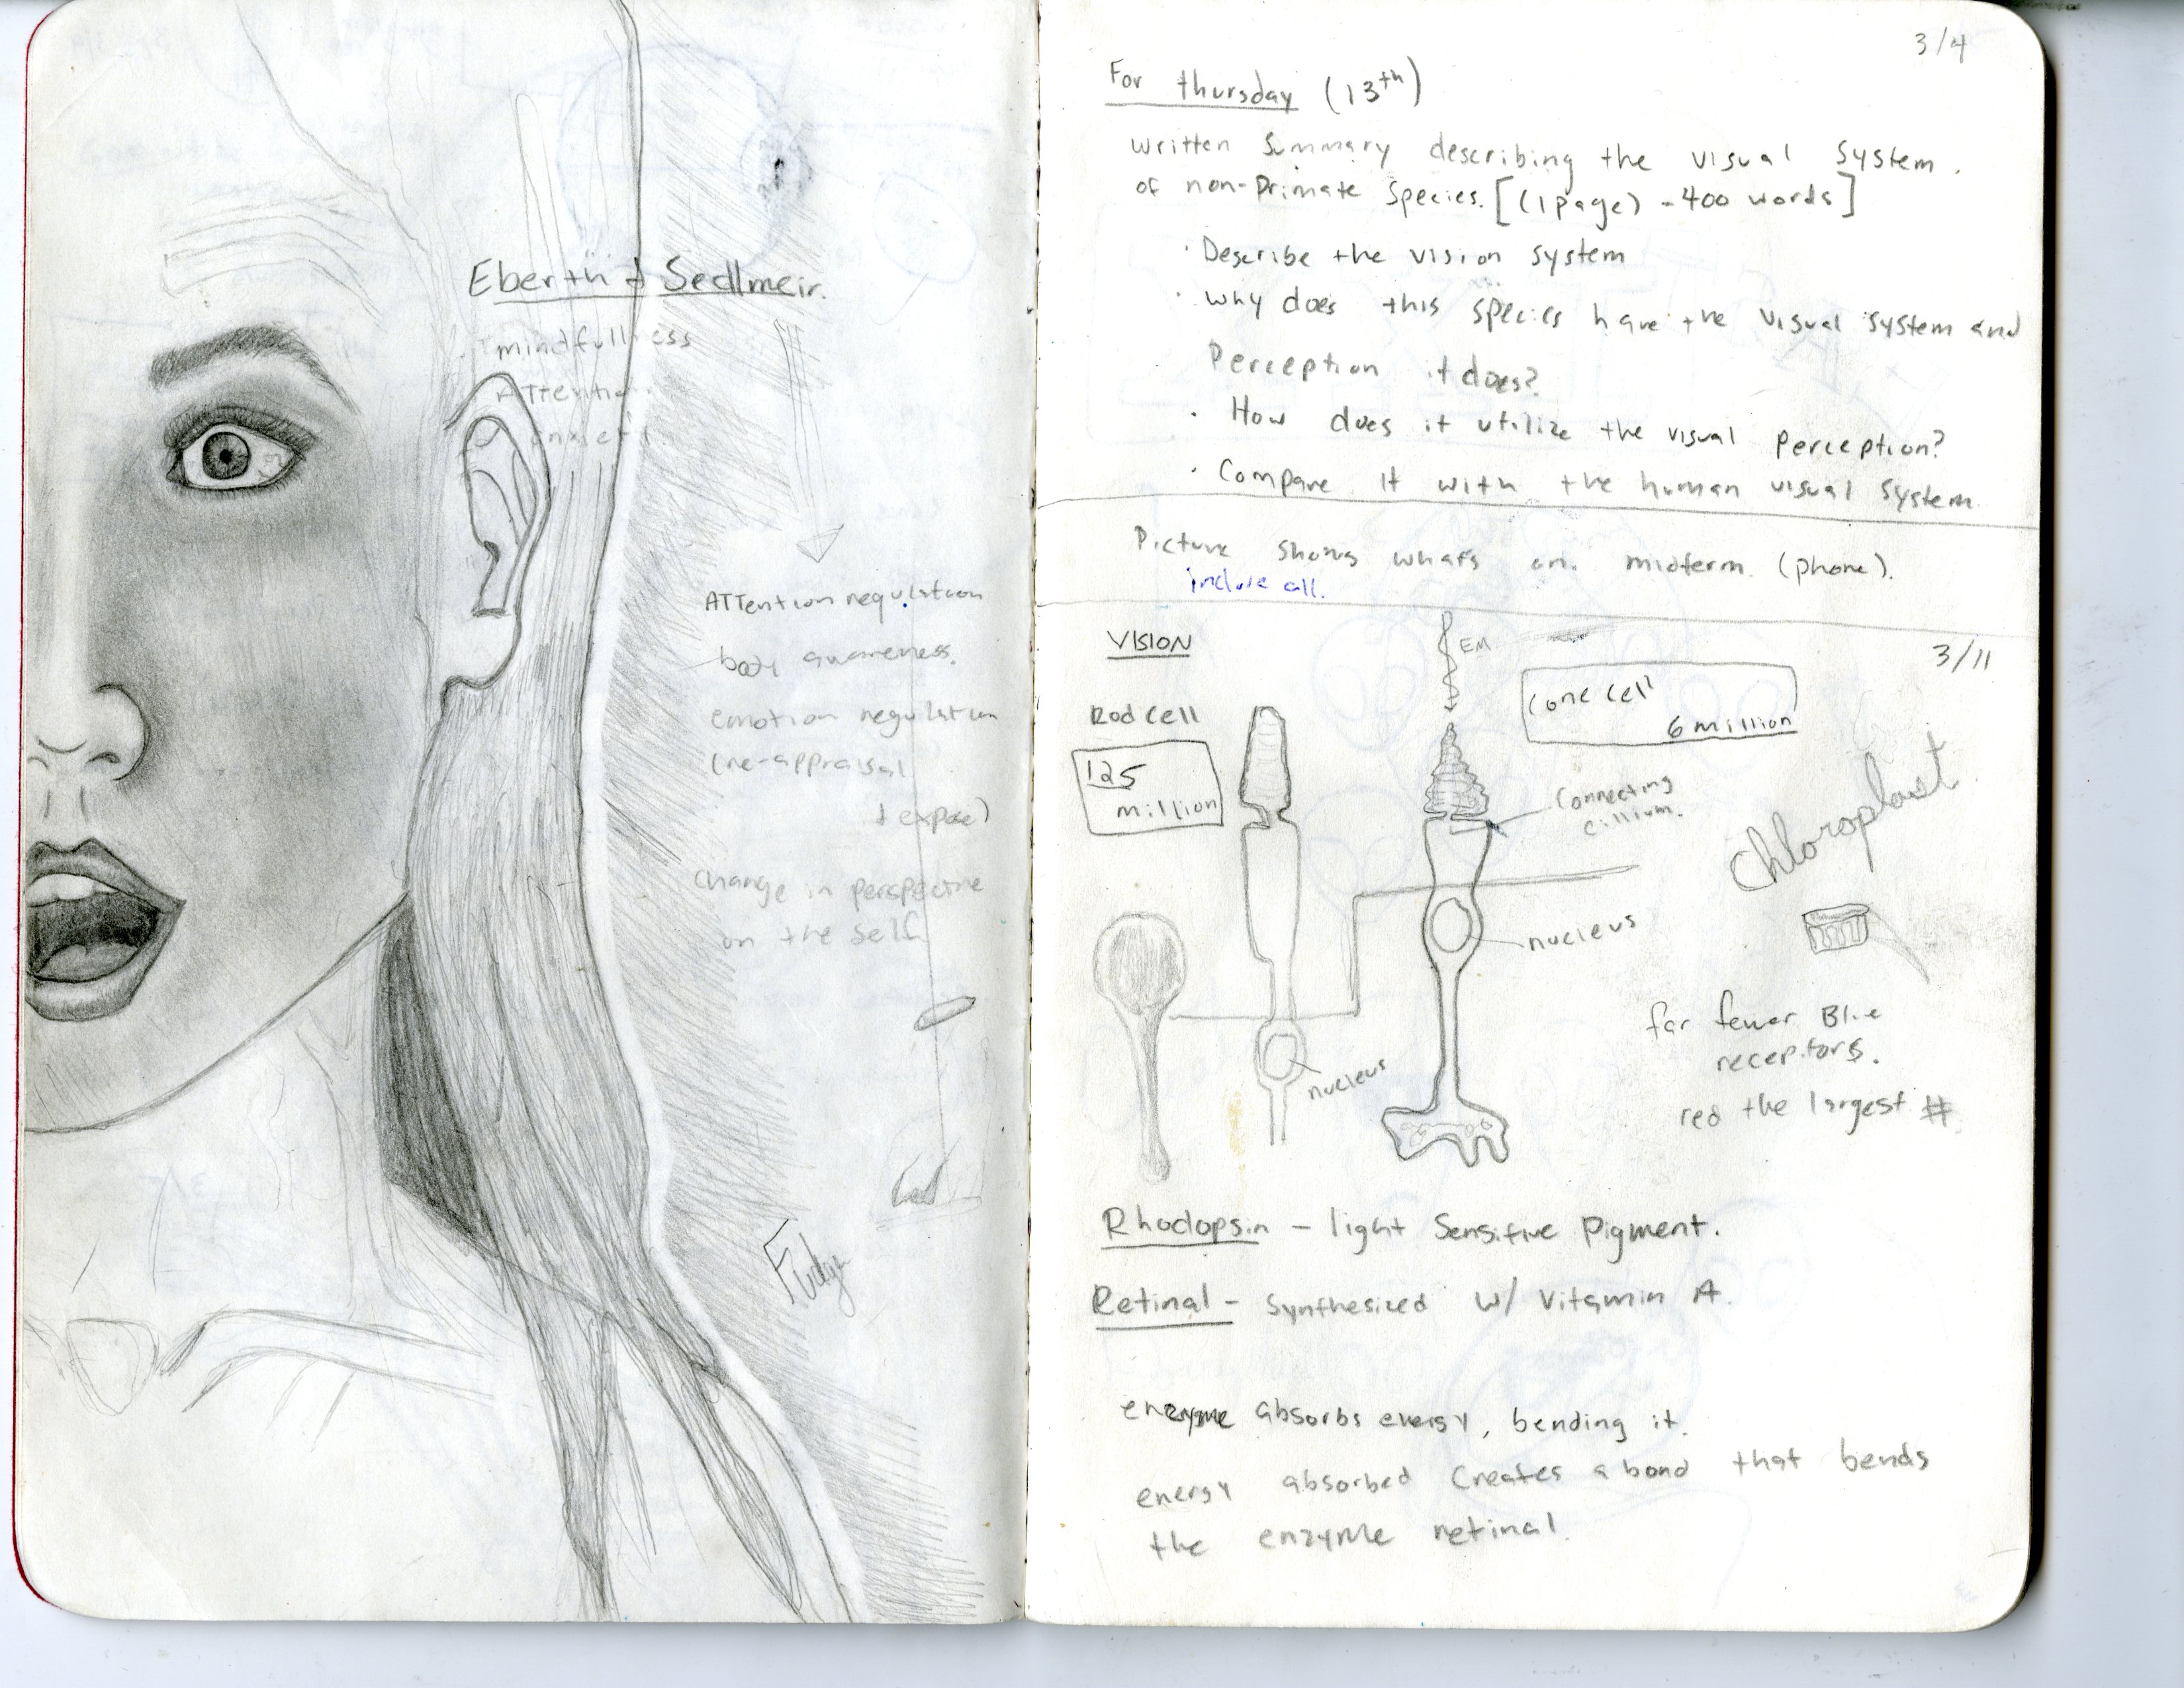 Eberth & Sedlmeir.
mindfullness
Attention
anxiety
ATTention regulation
body awareness.
emotion regulation
(re-appraisal
& expose)
change in perspective
on the self
3/4
For thursday (13th)
written summary describing the visual system
of non-primate species. [(1 page) - 400 words]
· Describe the vision system
· why does this species have the visual system and
Perception it does?
· How does it utilize the visual perception?
· Compare it with the human visual system.
Picture shows whats on midterm. (phone).
include all.
VISION
EM
3/11
Rod cell
125
million
Cone cell
6 million
Connecting
cillium.
Chloroplast
nucleus
nucleus
far fewer Blue
receptors.
red the largest #
Rhodopsin - light sensitive pigment.
Retinal - synthesized w/ vitamin A.
enzyme absorbs energy, bending it.
energy absorbed creates a bond that bends
the enzyme retinal.